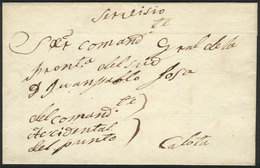 Servisio
Sor. Comand.te Gral de la
Fronta del Sud
D Juan pablo Sosa
del comand.te
Accidental
del punto
Calota